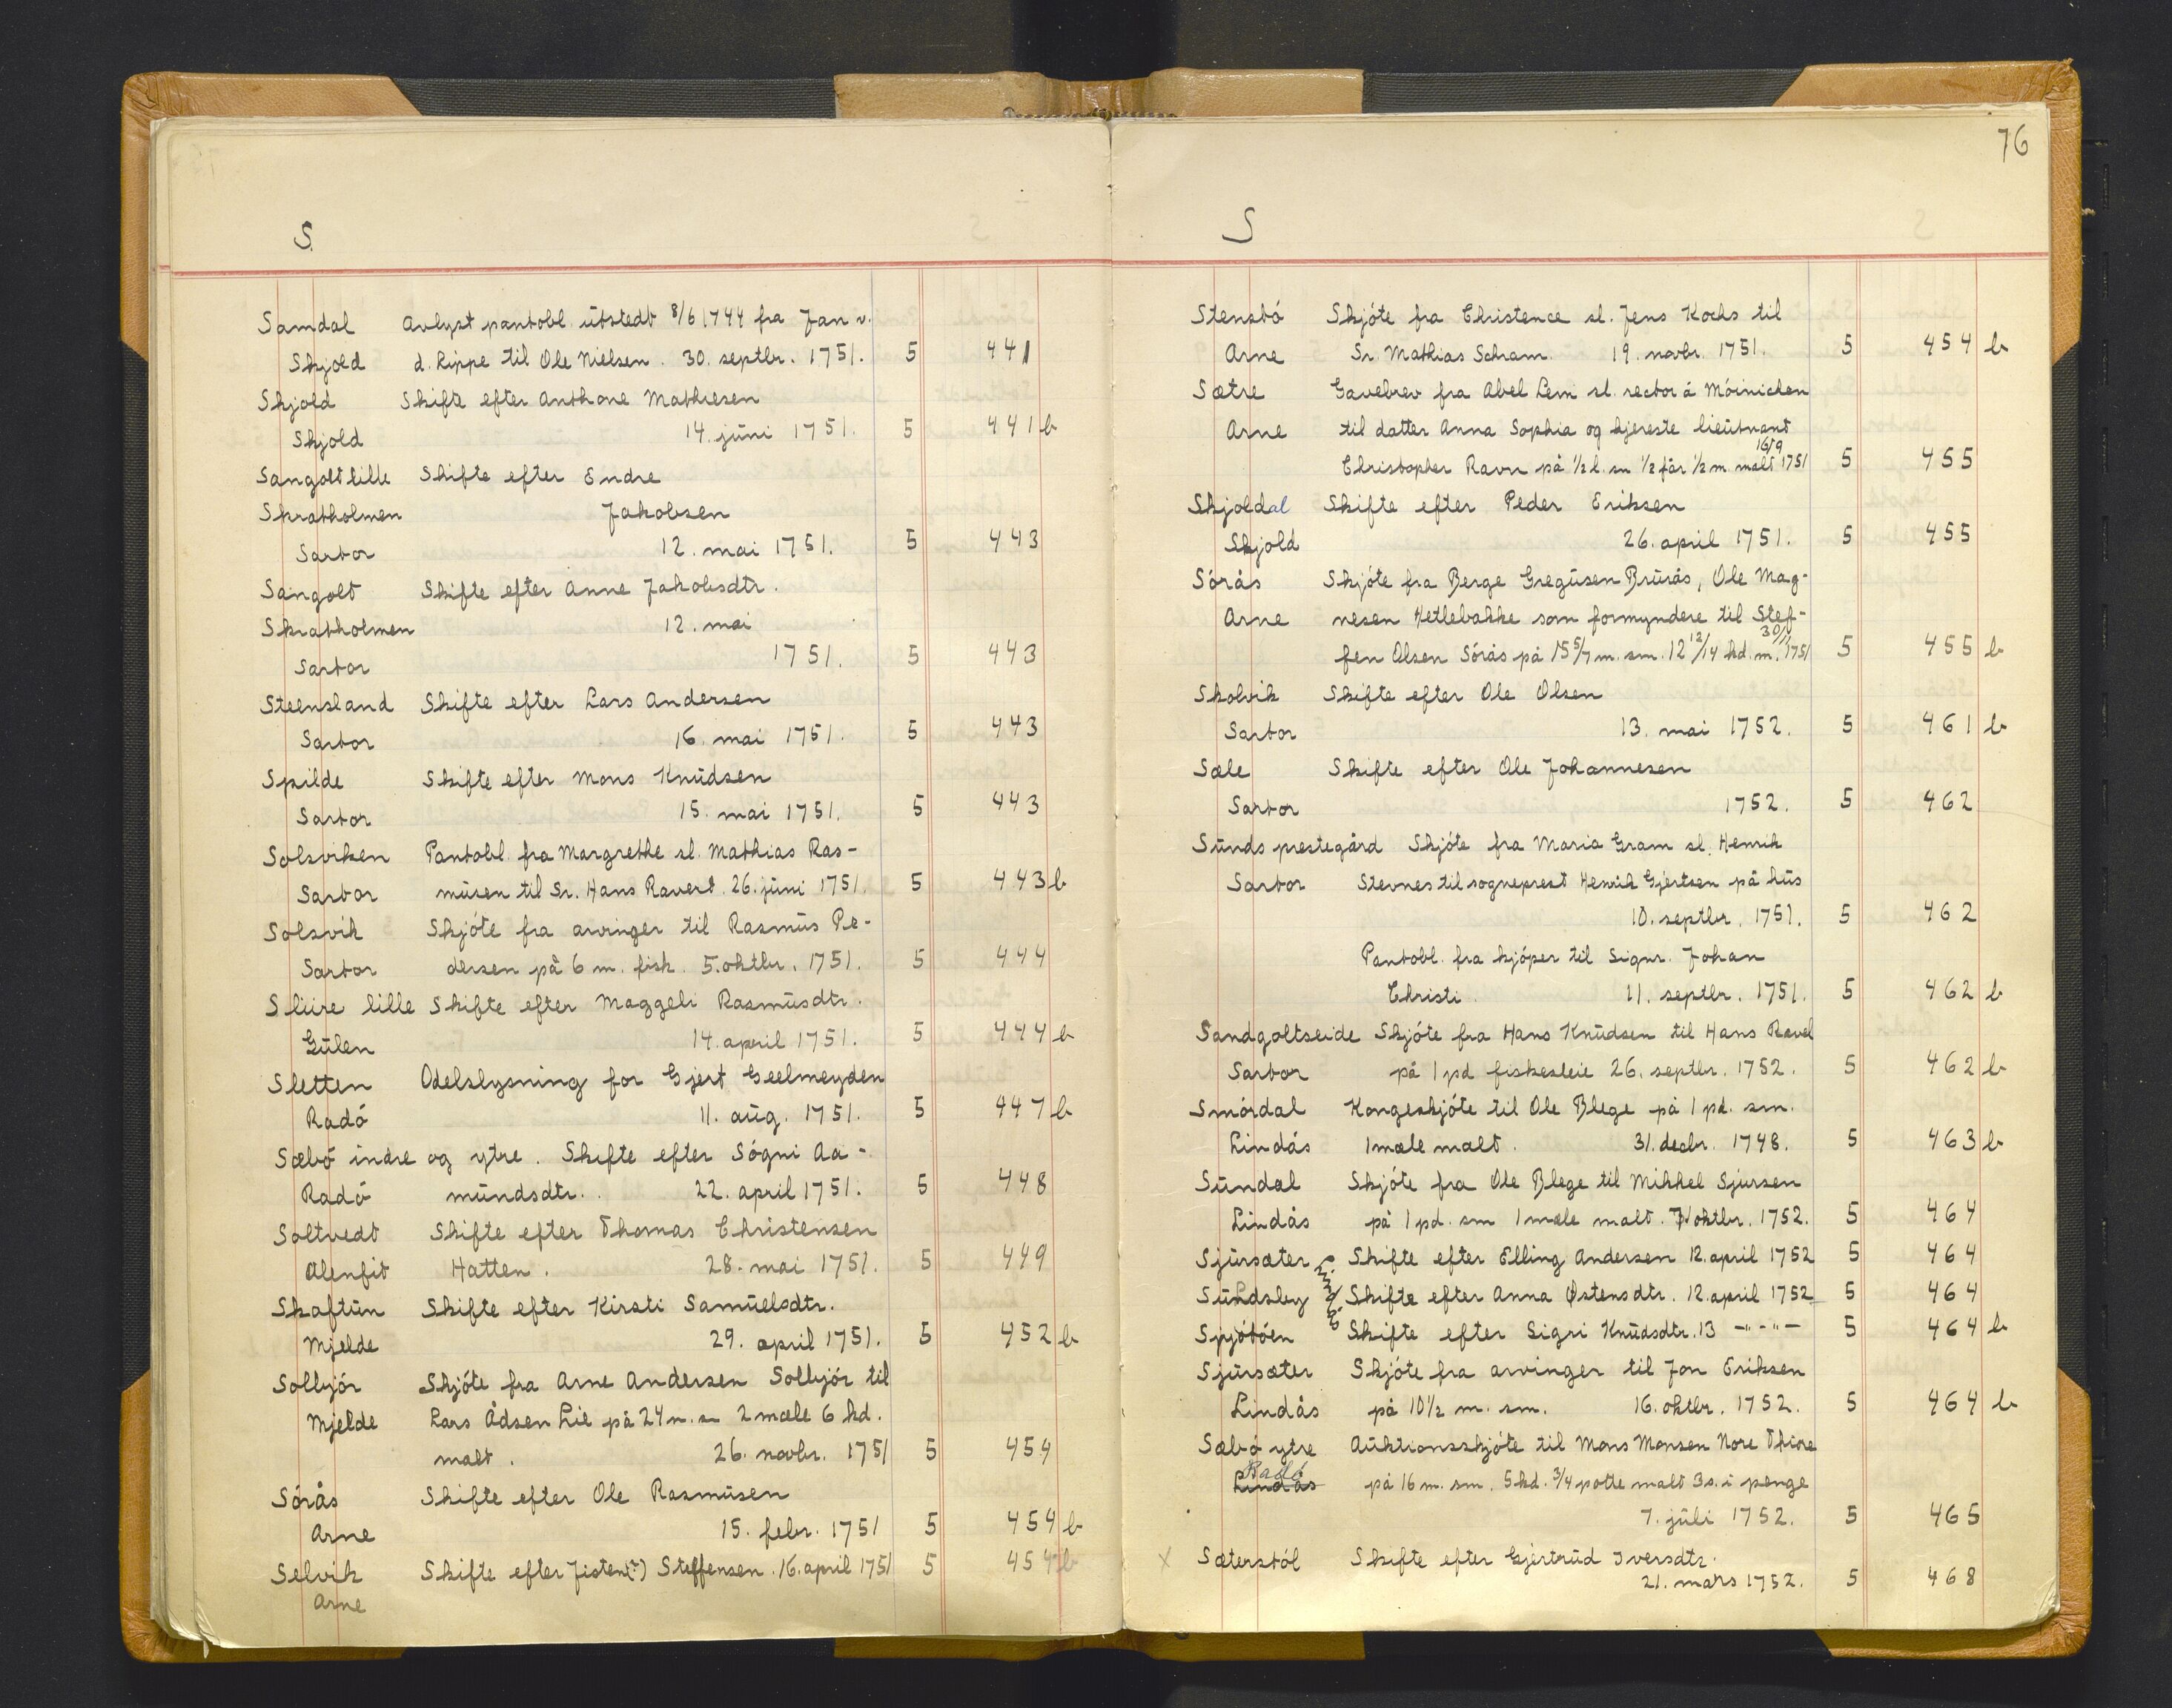 S.
Samdal Avlyst pantobl. utstedt 8/6 1744 fra Jan v.
Skjold d. Lippe til Ole Nielsen. 30. septbr. 1751. 5 441
Skjold Skifte efter Anthone Mathiesen
Skjold 14. juni 1751. 5 441 b
Sangolt lille Skifte efter Endre
Skratholmen Jakobsen
Sartor 12. mai 1751. 5 443
Sangolt Skifte efter Anne Jakobsdtr.
Skratholmen 12. mai
Sartor 1751. 5 443
Steensland Skifte efter Lars Andersen
Sartor 16. mai 1751. 5 443
Spilde Skifte efter Mons Knudsen
Sartor 15. mai 1751. 5 443
Solsviken Pantobl. fra Margrethe sl. Mathias Ras-
Sartor musen til Sr. Hans Ravert. 26. juni 1751. 5 443 b
Solsvik Skjóte fra arvinger til Rasmus Pe-
Sartor dersen på 6 m. fisk. 5. oktbr. 1751. 5 444
Sliire lille Skifte efter Maggeli Rasmusdtr.
Gulen 14. april 1751. 5 444 b
Sletten Odelslysning for Gjert Geelmeyden
Radó 11. aug. 1751. 5 447 b
Sæbó indre og ytre. Skifte efter Sógni Aa-
Radó mundsdtr. 22. april 1751. 5 448
Soltvedt Skifte efter Thomas Christensen
Alenfit Hatten. 28. mai 1751. 5 449
Skaftun Skifte efter Kirsti Samuelsdtr.
Mjelde 29. april 1751. 5 452 b
Solbjór Skjóte fra Arne Andersen Solbjór til
Mjelde Lars Ådsen Lie på 24 m. sm 2 mæle 6 kd.
malt. 26. novbr. 1751 5 454
Sórås Skifte efter Ole Rasmusen
Arne 15. febr. 1751 5 454 b
Selvik Skifte efter Jisten(?) Steffensen. 16. april 1751 5 454 b
Arne
76
S
Stenstó Skjóte fra Christence sl. Jens Kochs til
Arne Sr. Mathias Schram. 19. novbr. 1751. 5 454 b
Sætre Gavebrev fra Abel Lem sl. rector á Móinichen
Arne til datter Anna Sophia og kjereste lieutnant
16/9
Christopher Ravn på 1/2 l. sm 1/2 får 1/2 m. malt 1751 5 455
Skjoldal Skifte efter Peder Eriksen
Skjold 26. april 1751. 5 455
Sórås Skjóte fra Berge Gregusen Brurås, Ole Mag-
Arne nesen Hetlebakke som formyndere til Stef-
30/11
fen Olsen Sórås på 15 5/7 m. sm. 12 12/14 kd. m. 1751 5 455 b
Skolvik Skifte efter Ole Olsen
Sartor 13. mai 1752. 5 461 b
Sæle Skifte efter Ole Johannesen
Sartor 1752. 5 462
Sunds prestegård Skjóte fra Maria Gram sl. Henrik
Sartor Stevnes til sogneprest Henrik Gjertsen på hus
10. septbr. 1751. 5 462
Pantobl. fra kjóper til Signr. Johan
Christi. 11. septbr. 1751. 5 462 b
Sandgoltseide Skjóte fra Hans Knudsen til Hans Ravel
Sartor på 1 pd fiskesleie 26. septbr. 1752. 5 462 b
Smórdal Kongeskjóte til Ole Blege på 1 pd. sm.
Lindås 1 mæle malt. 31. decbr. 1748. 5 463 b
Sundal Skjóte fra Ole Blege til Mikkel Sjursen
Lindås på 1 pd. sm 1 mæle malt. 7. oktbr. 1752. 5 464
Sjursæter Skifte efter Elling Andersen 12. april 1752 5 464
Sundsley Skifte efter Anna Østensdtr. 12. april 1752 5 464
Spjótóen Skifte efter Sigri Knudsdtr. 13 -"-"- 5 464 b
Sjursæter Skjóte fra arvinger til Jon Eriksen
Lindås på 10 1/2 m. sm. 16. oktbr. 1752. 5 464 b
Sæbó ytre Auktionsskjóte til Mons Monsen Nore Thiore
Radó
Lindås på 16 m. sm. 5 kd. 3/4 potte malt 3 s. i penge
7. juli 1752. 5 465
X Sæterstól Skifte efter Gjertrud Iversdtr.
21. mars 1752. 5 468